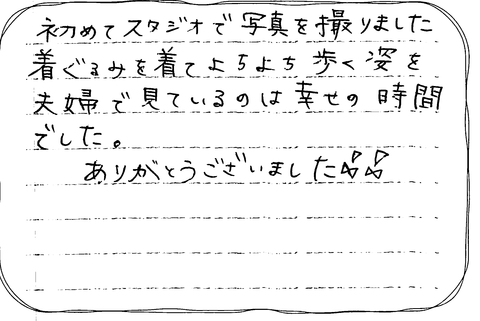 初めてスタジオで写真を撮りました
着ぐるみを着てよちよち歩く姿を
夫婦で見ているのは幸せの時間
でした。
ありがとうございました